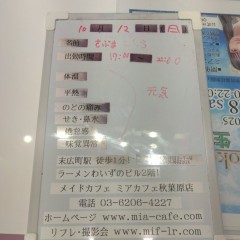 10 12 日
名前
出勤時間
体温
平熱
のどの痛み
せき・鼻水
倦怠感
味覚異常
末広町駅 徒歩1分!
ラーメンわいずのビル2階!
メイドカフェ ミアカフェ秋葉原店
電話 03-6206-4227
ホームページ www.mia-cafe.com
リフレ・撮影会 www.mif-lr.com
2025